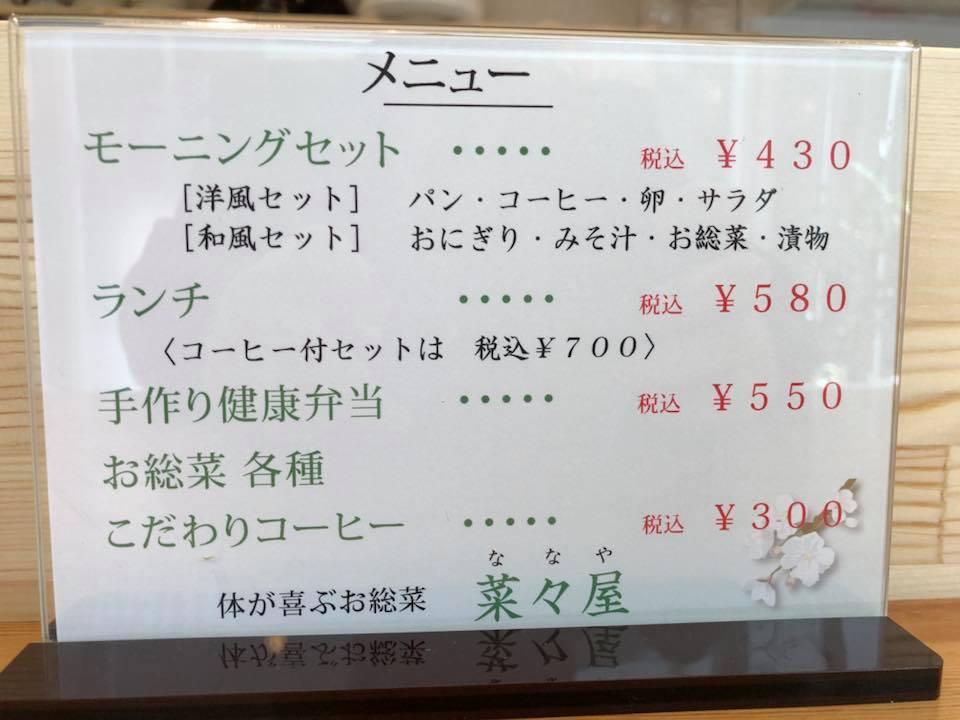 メニュー
モーニングセット ・・・・・ 税込 ￥430
［洋風セット］ パン・コーヒー・卵・サラダ
［和風セット］ おにぎり・みそ汁・お総菜・漬物
ランチ ・・・・・ 税込 ￥580
〈コーヒー付セットは 税込￥700〉
手作り健康弁当 ・・・・・ 税込 ￥550
お総菜 各種
こだわりコーヒー ・・・・・ 税込 ￥300
ななや
体が喜ぶお総菜 菜々屋